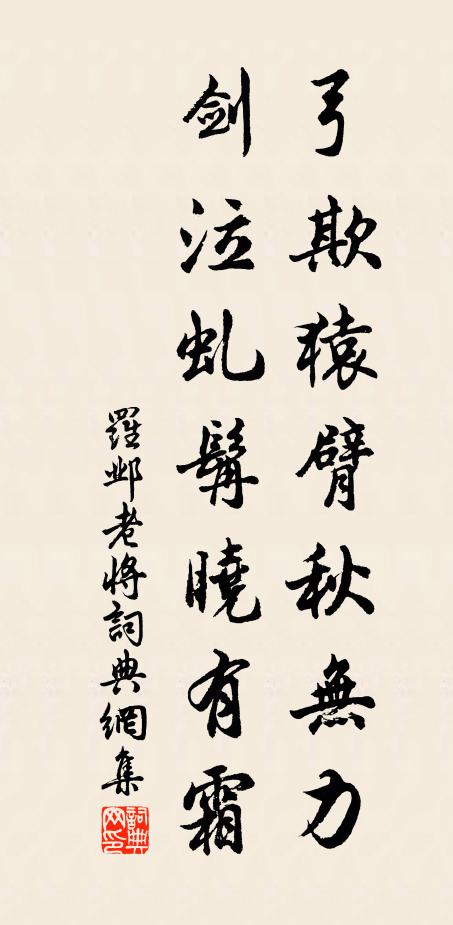 弓欺猿臂秋無力
劍泣虬髯曉有霜
羅邺老將詞典網集
詞典网印